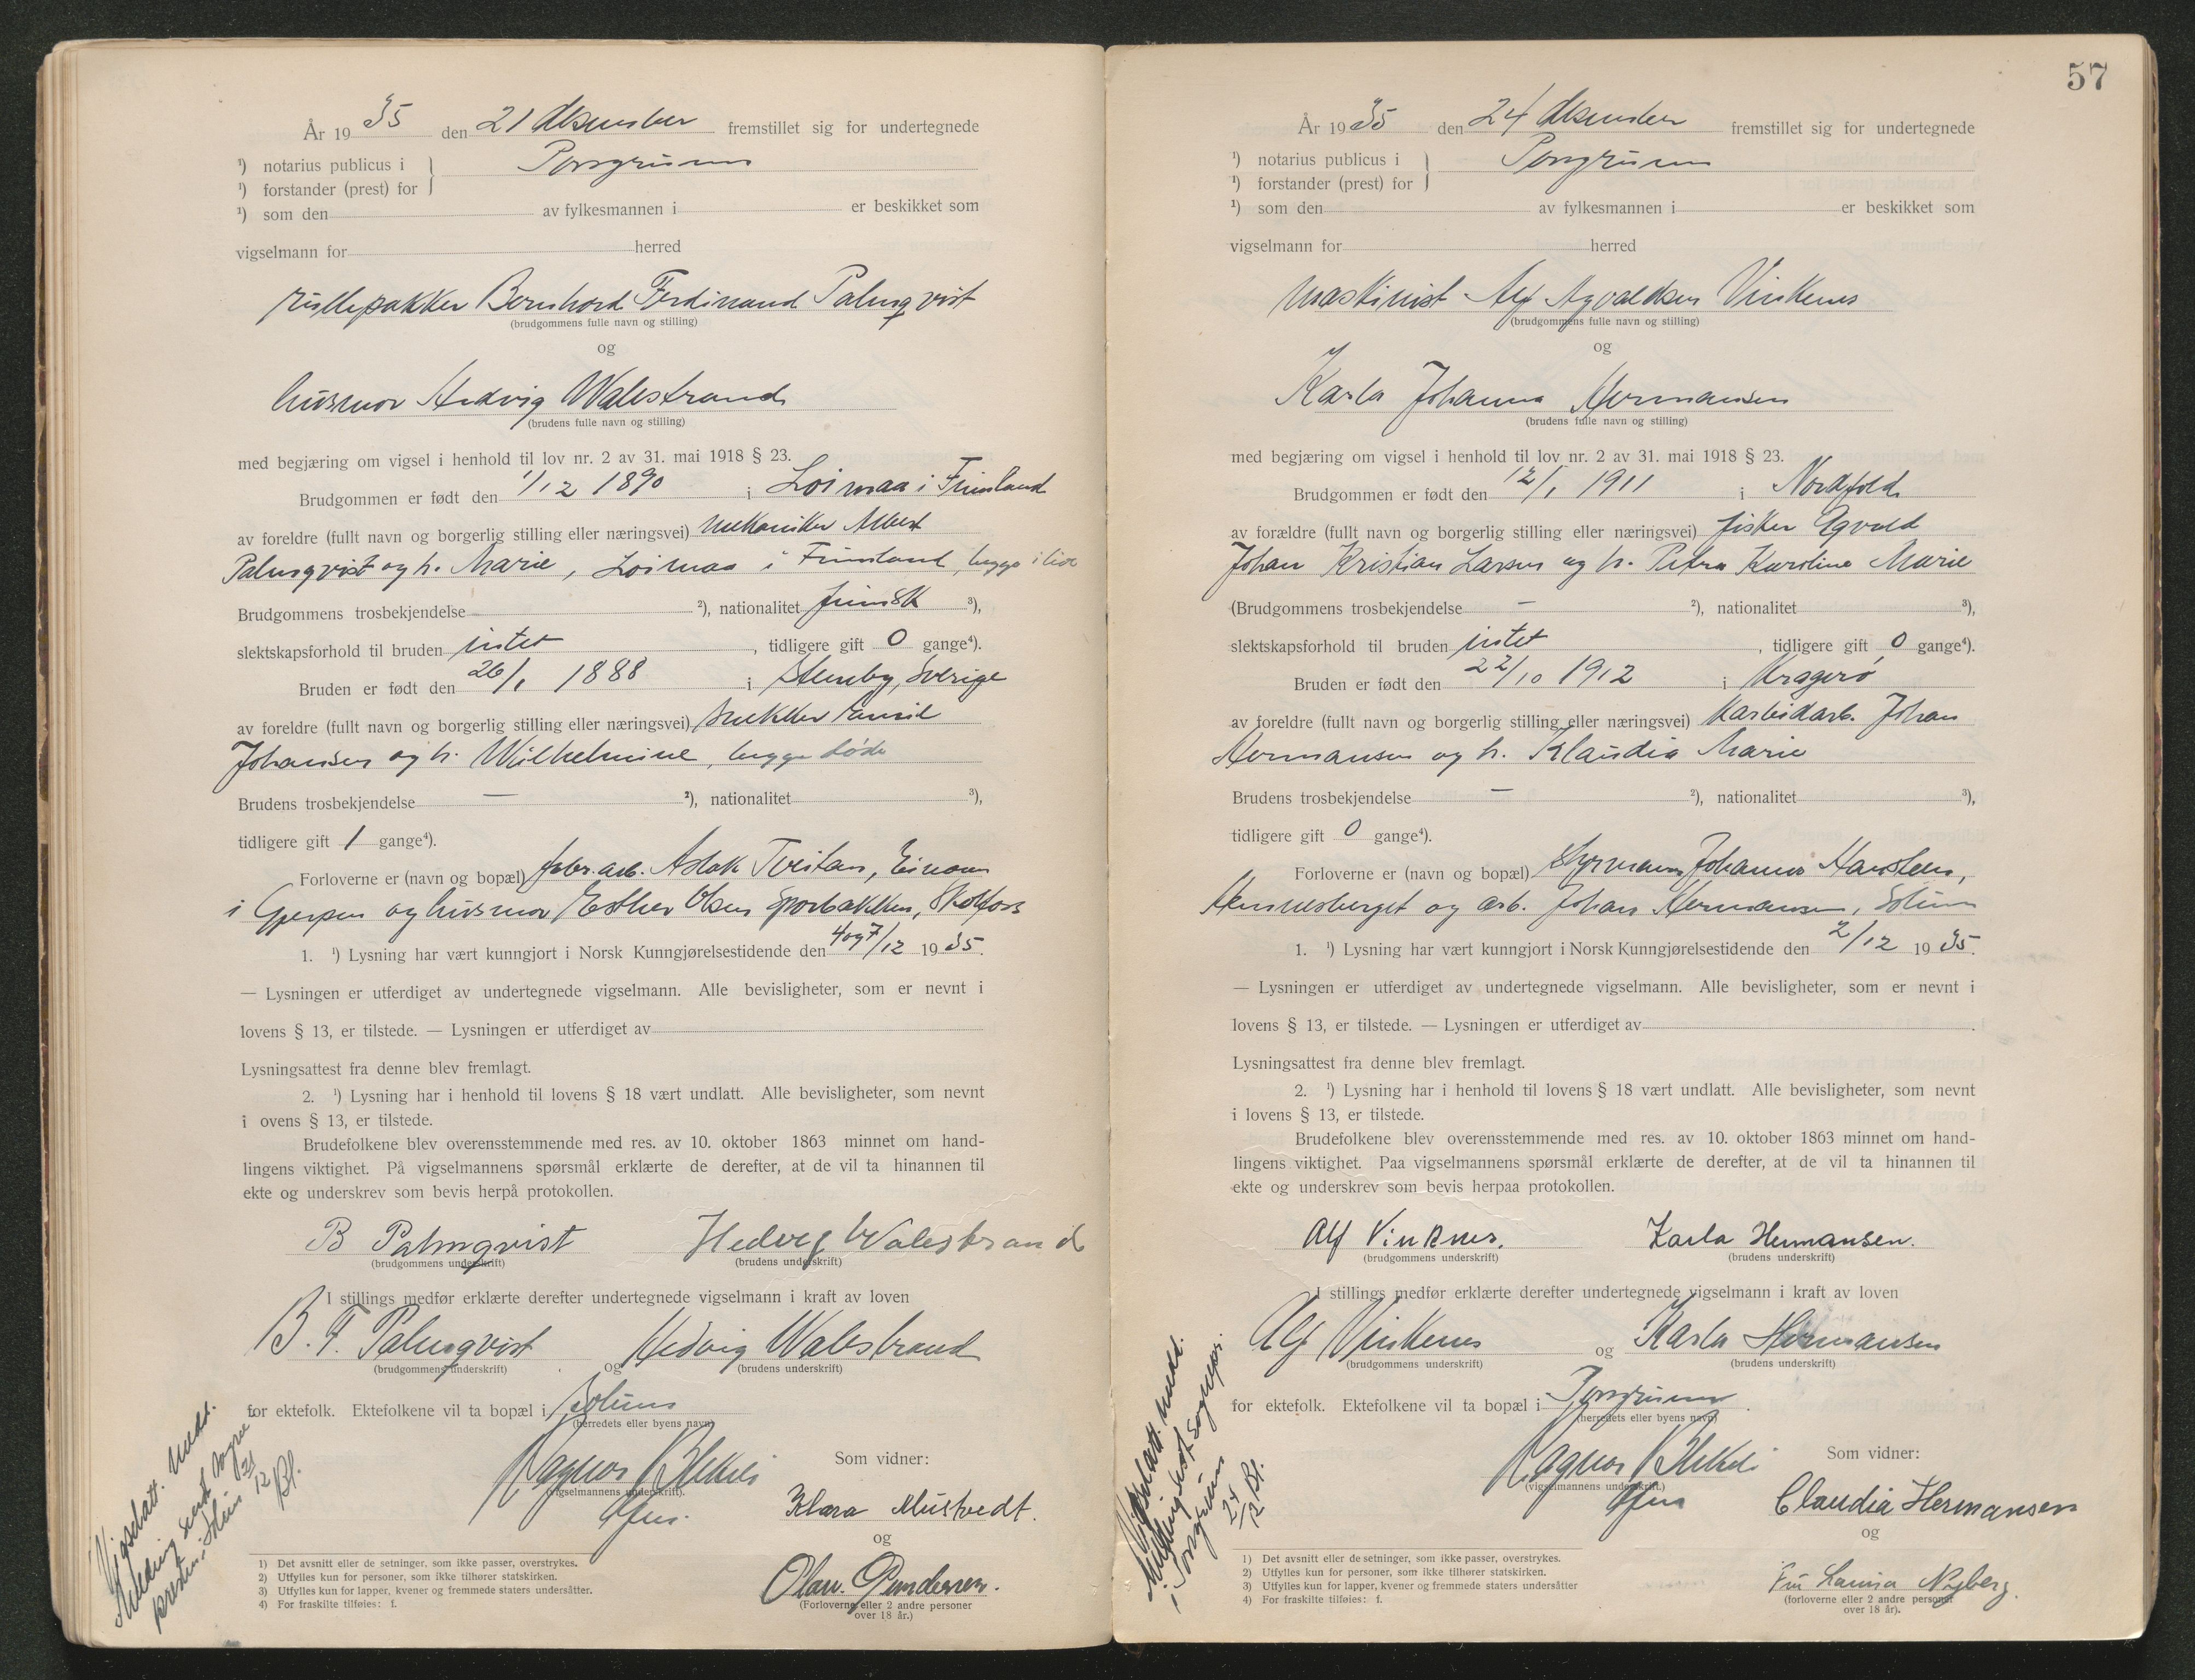 År 19 35 den 21 desember fremstillet sig for undertegnede
¹) notarius publicus i } Porsgrunn
¹) forstander (prest) for
¹) som den av fylkesmannen i er beskikket som
vigselmann for herred
rullepakker Bernhard Ferdinand Palmqvist
(brudgommens fulle navn og stilling)
og
husmor Hedvig Walestrand
(brudens fulle navn og stilling)
med begjæring om vigsel i henhold til lov nr. 2 av 31. mai 1918 § 23.
Brudgommen er født den 1/12 1890 i Loimaa i Finnland
av foreldre (fullt navn og borgerlig stilling eller næringsvei) mekaniker Albert
Palmqvist og h. Marie, Loimaa i Finnland, begge i live
Brudgommens trosbekjendelse ²), nationalitet finnsk ³),
slektskapsforhold til bruden intet, tidligere gift 0 gange⁴).
Bruden er født den 26/1 1888 i Stenby, Sverige
av foreldre (fullt navn og borgerlig stilling eller næringsvei) snekker Emil
Johansen og h. Wilhelmine, begge døde
Brudens trosbekjendelse — ²), nationalitet ³),
tidligere gift 1 gange⁴).
Forloverne er (navn og bopæl) fabr.arb. Aslak Tveitan,
i Gjerpen og husmor Esther Olsen Sporbakken, Skotfoss
1. ¹) Lysning har vært kunngjort i Norsk Kunngjørelsestidende den 4 og 7/12 19 35.
— Lysningen er utferdiget av undertegnede vigselmann. Alle bevisligheter, som er nevnt i
lovens § 13, er tilstede. — Lysningen er utferdiget av
Lysningsattest fra denne blev fremlagt.
2. ¹) Lysning har i henhold til lovens § 18 vært undlatt. Alle bevisligheter, som nevnt
i ovens § 13, er tilstede.
Brudefolkene blev overensstemmende med res. av 10. oktober 1863 minnet om hand-
lingens viktighet. På vigselmannens spørsmål erklærte de derefter, at de vil ta hinannen til
ekte og underskrev som bevis herpå protokollen.
B Palmqvist Hedvig Walestrand
(brudgommens underskrift) (brudens underskrift)
I stillings medfør erklærte derefter undertegnede vigselmann i kraft av loven
B. F. Palmqvist og Hedvig Walestrand
(brudgommens underskrift) (brudens underskrift)
for ektefolk. Ektefolkene vil ta bopæl i Solum
(herredets eller byens navn)
Ragnar Blekeli
(vigselmannens underskrift).
Som vidner:
Klara Mustvedt.
og
Olav. Gundersen.
(Forloverne eller 2 andre personer
over 18 år.)
Vigselatt. meddt.
Melding sendt sogne
presten i Solum 21/12 Bl.
1) Det avsnitt eller de setninger, som ikke passer, overstrykes.
2) Utfylles kun for personer, som ikke tilhører statskirken.
3) Utfylles kun for lapper, kvener og fremmede staters undersåtter.
4) For fraskilte tilføies: f.
57
År 19 35 den 24 desember fremstillet sig for undertegnede
¹) notarius publicus i } Porsgrunn
¹) forstander (prest) for
¹) som den av fylkesmannen i er beskikket som
vigselmann for herred
Maskinist Alf Agvaldsen Vinkenes
(brudgommens fulle navn og stilling)
og
Karla Johanna Hermansen
(brudens fulle navn og stilling)
med begjæring om vigsel i henhold til lov nr. 2 av 31. mai 1918 § 23.
Brudgommen er født den 12/1 1911 i Nordfold
av forældre (fullt navn og borgerlig stilling eller næringsvei) fisker Agvald
Johan Kristian Larsen og h. Petra Karoline Marie
(Brudgommens trosbekjendelse — ²), nationalitet ³),
slektskapsforhold til bruden intet, tidligere gift 0 gange⁴).
Bruden er født den 22/10 1912 i Kragerø
av foreldre (fullt navn og borgerlig stilling eller næringsvei) Karbidarb. Johan
Hermansen og h. Klaudia Marie
Brudens trosbekjendelse — ²), nationalitet ³),
tidligere gift 0 gange⁴).
Forloverne er (navn og bopæl) styrmann Johannes
og arb. Johan Hermansen, Solum
1. ¹) Lysning har vært kunngjort i Norsk Kunngjørelsestidende den 2/12 19 35.
— Lysningen er utferdiget av undertegnede vigselmann. Alle bevisligheter, som er nevnt i
lovens § 13, er tilstede. — Lysningen er utferdiget av
Lysningsattest fra denne blev fremlagt.
2. ¹) Lysning har i henhold til lovens § 18 vært undlatt. Alle bevisligheter, som nevnt
i lovens § 13, er tilstede.
Brudefolkene blev overensstemmende med res. av 10. oktober 1863 minnet om hand-
lingens viktighet. Paa vigselmannens spørsmål erklærte de derefter, at de vil ta hinannen til
ekte og underskrev som bevis herpaa protokollen.
Alf Vinknes. Karla Hermansen.
(brudgommens underskrift) (brudens underskrift)
I stillings medfør erklærte derefter undertegnede vigselmann i kraft av loven
Alf Vinkenes og Karla Hermansen
(brudgommens underskrift) (brudens underskrift)
for ektefolk. Ektefolkene vil ta bopæl i Porsgrunn.
(herredets eller byens navn)
Ragnar Blekeli
(vigselmannens underskrift.)
Som vidner:
Claudia Hermansen
og
Fru Laura Nyberg.
(forloverne eller 2 andre personer
over 18 år).
Vigselatt. meddt.
Melding sendt sognepr.
i Porsgrunn 24/12 Bl.
1) Det avsnitt eller de setninger, som ikke passer, overstrykes.
2) Utfylles kun for personer, som ikke tilhører statskirken.
3) Utfylles kun for lapper, kvener og fremmede staters undersåtter
4) For fraskilte tilføies: f.